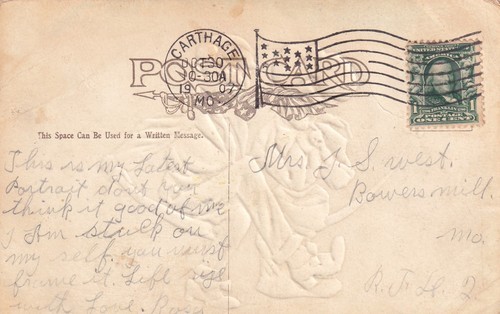 CARTHAGE
OCT 30
10-30A
1907
MO.
POST CARD
UNITED STATES
POSTAGE
ONE CENT
1
This Space Can Be Used for a Written Message.
This is my Latest
Portrait dont you
think it good of me
I Am stuck on
my self, you must
frame it. Life size
with Love. Rosa
Mrs. J. S. West.
Bowers mill.
Mo.
R.F.D. 2